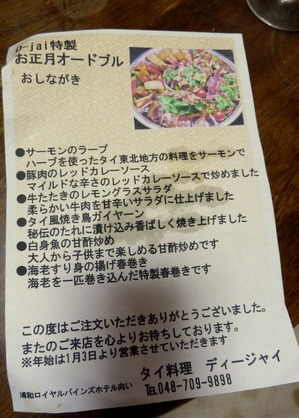 D-jai特製
お正月オードブル
おしながき
●サーモンのラープ
ハーブを使ったタイ東北地方の料理をサーモンで
●豚肉のレッドカレーソース
マイルドな辛さのレッドカレーソースで炒めました
●牛たたきのレモングラスサラダ
柔らかい牛肉を甘辛いサラダに仕上げました
●タイ風焼き鳥ガイヤーン
秘伝のたれに漬け込み香ばしく焼き上げました
●白身魚の甘酢炒め
大人から子供まで楽しめる甘酢炒めです
●海老すり身の揚げ春巻き
海老を一匹巻き込んだ特製春巻きです
この度はご注文いただきありがとうございました。
またのご来店を心よりお待ちしております。
※年始は1月3日より営業させていただきます
タイ料理 ディージャイ
浦和ロイヤルパインズホテル向い
TEL048-709-9898